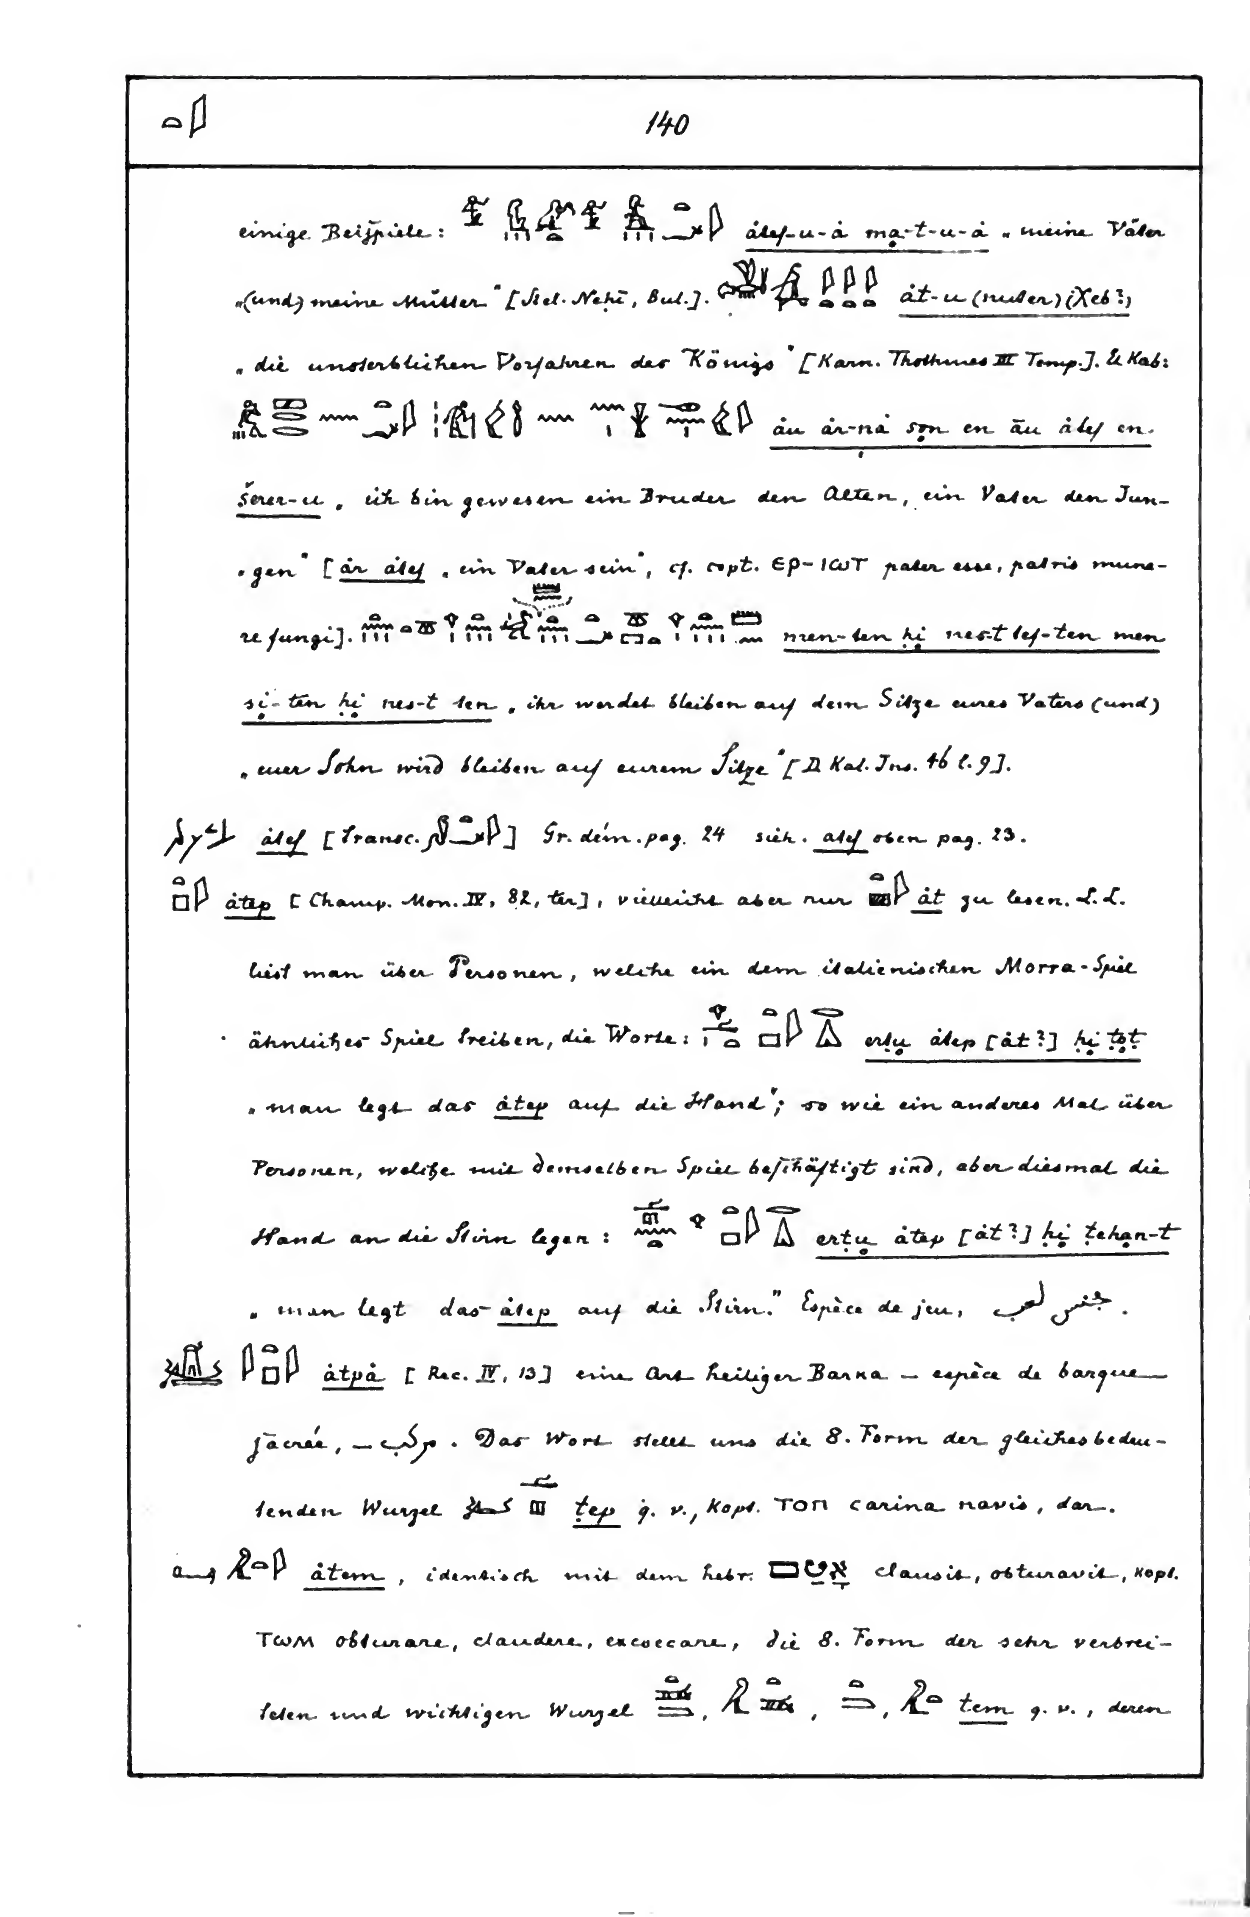 140
einige Beispiele: åtef-u-å ma-t-u-å „meine Väter
„(und) meine Mütter" [Stel. Nehi, Bul.]. åt-u (nuter) (Xeb?)
„die unsterblichen Vorfahren des Königs" [Karn. Thothmes III Temp.]. El Kab:
åu år-nå son en āu åtef en
šerer-u „ich bin gewesen ein Bruder den Alten, ein Vater den Jun-
„gen" [år åtef „ein Vater sein", cf. copt. ⲉⲣ-ⲓⲱⲧ pater esse, patris mune-
re fungi]. men-ten ḥi nes-t tef-ten men
si-ten ḥi nes-t ten „ihr werdet bleiben auf dem Sitze eures Vaters (und)
„euer Sohn wird bleiben auf eurem Sitze" [D Kal. Ins. 46 l. 9].
åtef [Transc. ] Gr. dém. pag. 24 sieh. atef oben pag. 23.
åtep [Champ. Mon. IV, 82, ter], vielleicht aber nur åt zu lesen. L. L.
liest man über Personen, welche ein dem italienischen Morra-Spiel
ähnliches Spiel treiben, die Worte: erṭu åtep [åt?] ḥi ṭoṭ
„man legt das åtep auf die Hand"; so wie ein anderes Mal über
Personen, welche mit demselben Spiel beschäftigt sind, aber diesmal die
Hand an die Stirn legen: erṭu åtep [åt?] ḥi ṭehan-t
„man legt das åtep auf die Stirn." Espèce de jeu, جنس لعب.
åtpå [Rec. IV, 13] eine Art heiliger Barka – espèce de barque
sacrée, – مركب. Das Wort stellt uns die 8. Form der gleichesbedeu-
tenden Wurzel ṭep q. v., kopt. ⲧⲟⲡ carina navis, dar.
åtem, identisch mit dem hebr. אָטַם clausit, obturavit, kopt.
ⲧⲱⲙ obturare, claudere, excoecare, die 8. Form der sehr verbrei-
teten und wichtigen Wurzel , , , tem q. v., deren